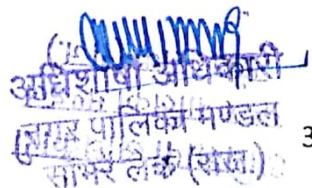 अधिशाषी अधिकारी
नगर पालिका मण्डल
सांभर लेक (राज.)
3